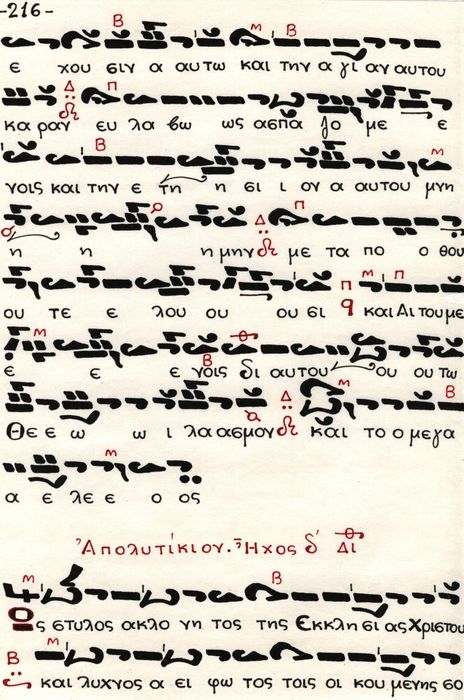 -216-
ε χου σιν α αυτω και την α γι αν αυτου
κα ραν ευ λα βω ως ασπα ζο με ε
νοις και την ε τη η σι ι ον α αυτου μνη
η η η μην με τα πο ο θου
ου τε ε λου ου ου σι και Αι του με
ε ε ε ε νοις δι αυτου ου ου τω
Θε ε ω ω ι λα ασμον και το ο μεγα
α ε λε ε ο ος
Ἀπολυτίκιον. Ἦχος δ´ Δι
Ος στυλος ακλο νη τος της Εκκλη σι ας Χριστου
και λυχνος α ει φω τος τοις οι κου μενης σο